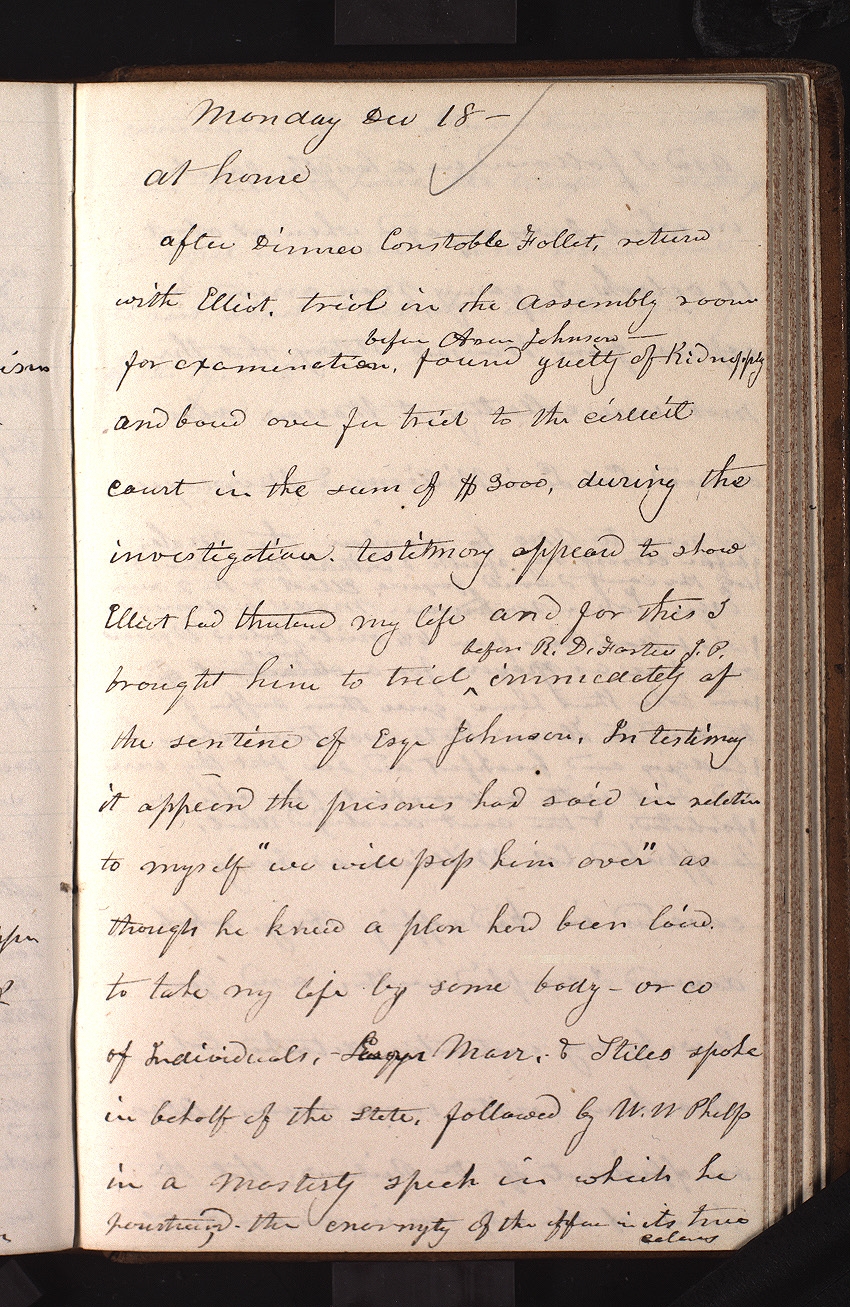 Monday Dec 18 —
at home
after Dinner Constable Follet, returnd
with Elliot. trial in the assembly room
before Aron Johnson —
for examination, found guilty of Kidnappig
and boud over for trial to the circuit
court in the sum of $3000, during the
investigation. testimony appeard to show
Elliot had thretend my life and for this I
before R. D. Foster J. P.
brought him to trial ^ immedately af
the sentene of Esqr Johnson. In testimoy
it appeard the prisoner had said in relation
to myself "we will pop him over" as
though he knew a plan had been laid.
to take my life by some body — or co
of Individuals, — Marr, & Stiles spoke
in behalf of the State. followed by W. W Phelps
in a masterly speech in which he
the enormyty of the offence in its true
colors
ism